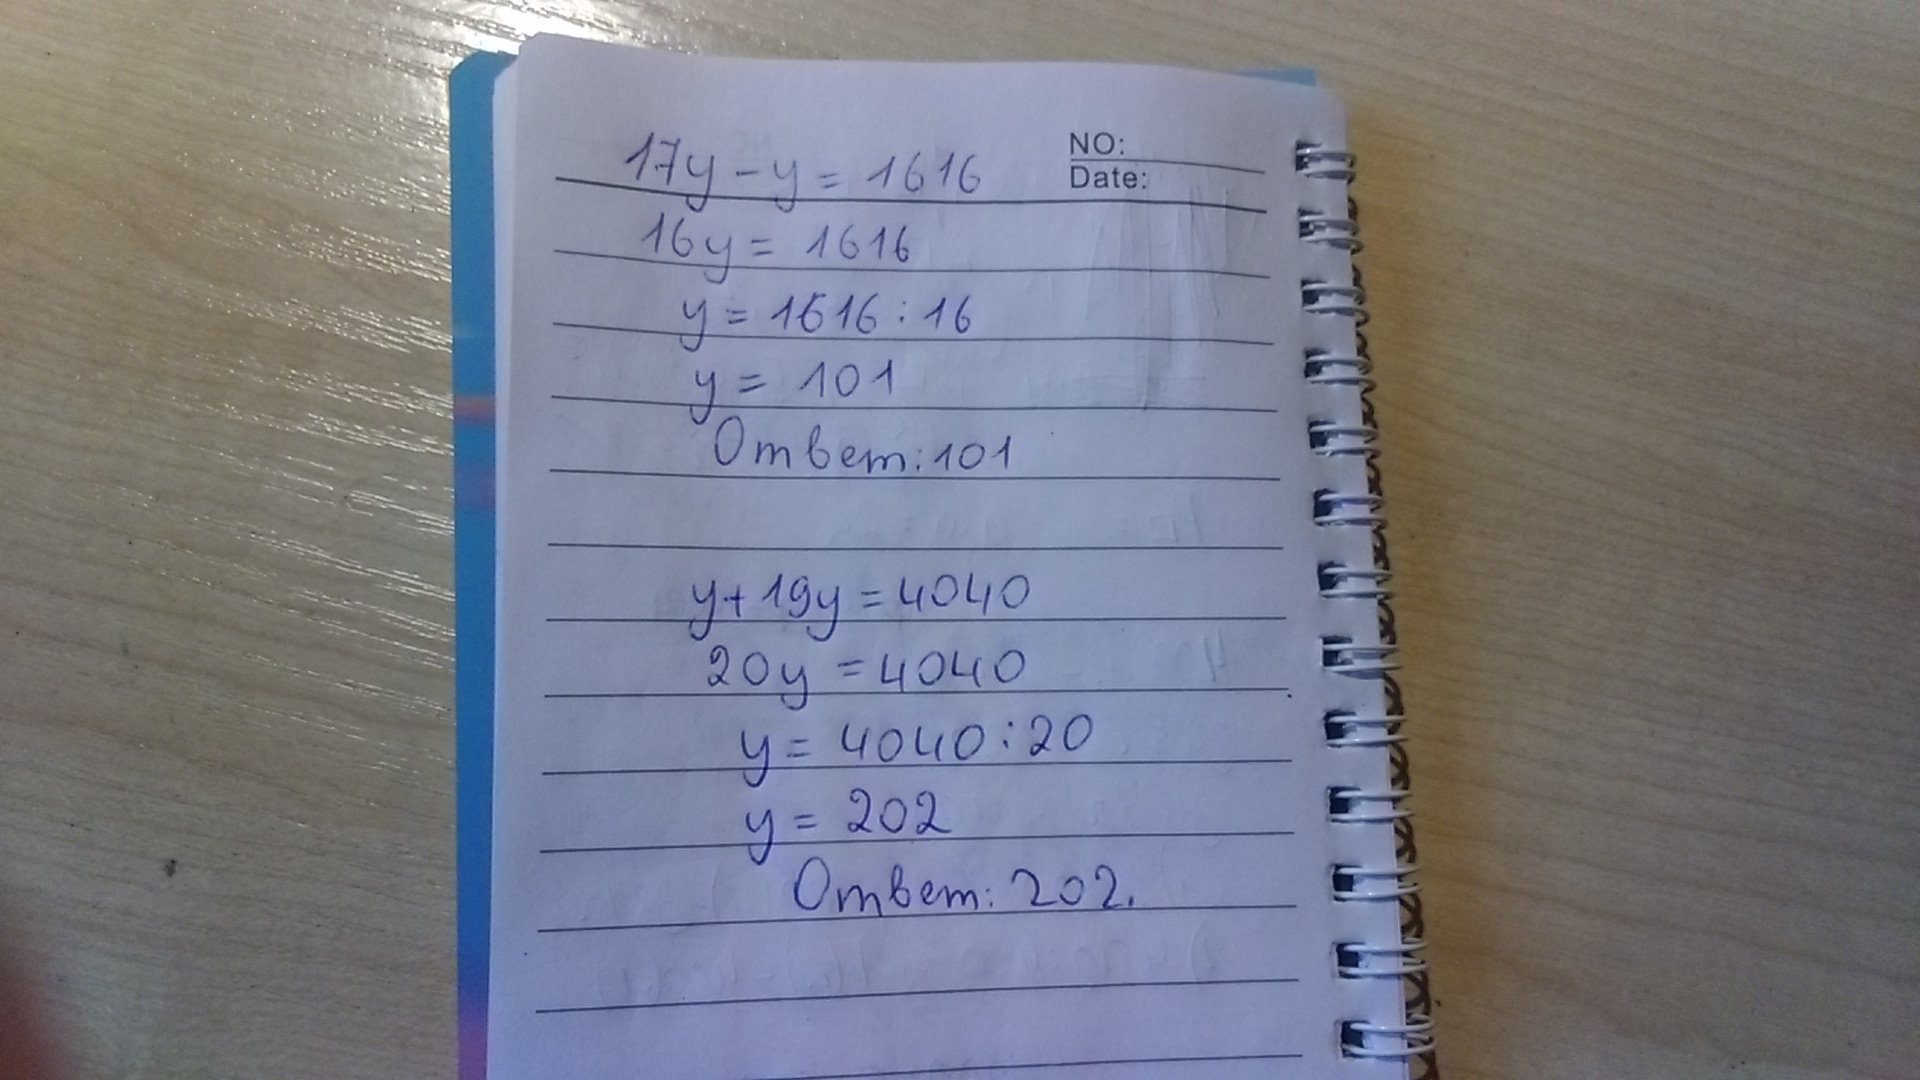 17y - y = 1616
NO:
Date:
16y = 1616
y = 1616 : 16
y = 101
Ответ: 101
y + 19y = 4040
20y = 4040
y = 4040 : 20
y = 202
Ответ: 202.